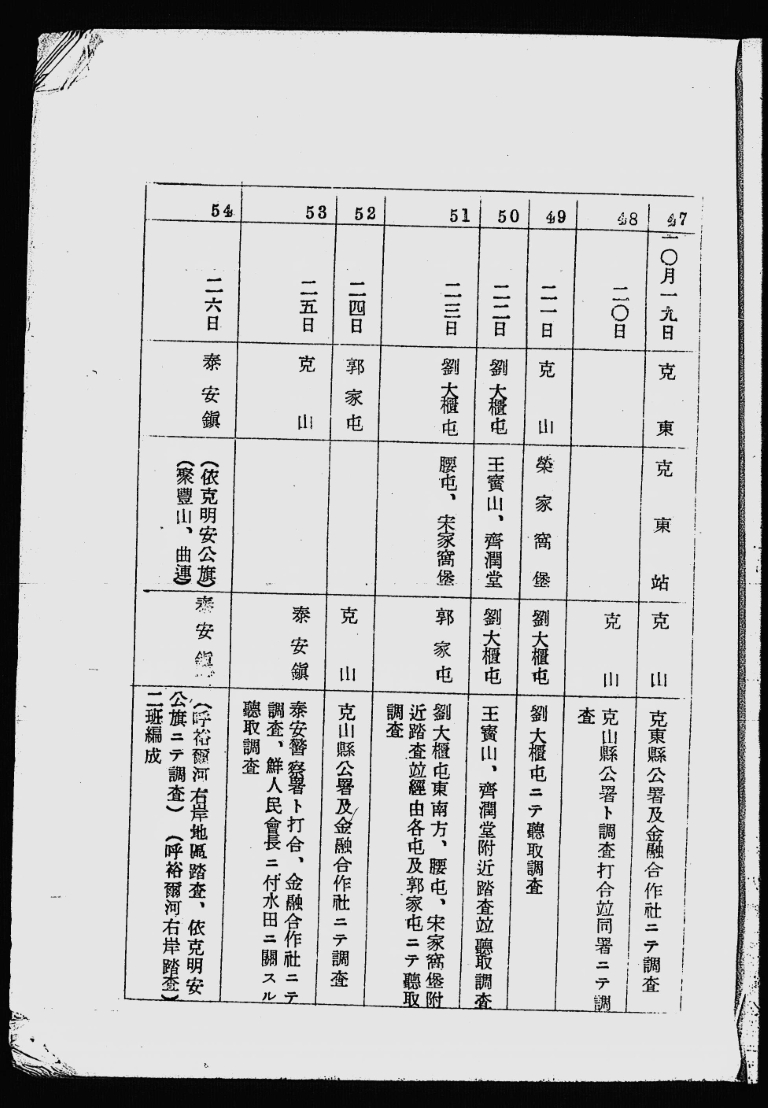 47
一〇月一九日
克東
克東站
克山
克東縣公署及金融合作社ニテ調査
48
二〇日
克山
克山縣公署ト調査打合竝同署ニテ調
査
49
二一日
克山
榮家窩堡
劉大櫃屯
劉大櫃屯ニテ聽取調査
50
二二日
劉大櫃屯
王賓山、齊潤堂
劉大櫃屯
王賓山、齊潤堂附近踏査竝聽取調査
51
二三日
劉大櫃屯
腰屯、宋家窩堡
郭家屯
劉大櫃屯東南方、腰屯、宋家窩堡附
近踏査竝經由各屯及郭家屯ニテ聽取
調査
52
二四日
郭家屯
克山
克山縣公署及金融合作社ニテ調査
53
二五日
克山
泰安鎭
泰安警察署ト打合、金融合作社ニテ
調査、鮮人民會長ニ付水田ニ關スル
聽取調査
54
二六日
泰安鎭
(依克明安公旗)
(聚豐山、曲連)
泰安鎭
(呼裕爾河右岸地區踏査、依克明安
公旗ニテ調査)(呼裕爾河右岸踏査)
二班編成